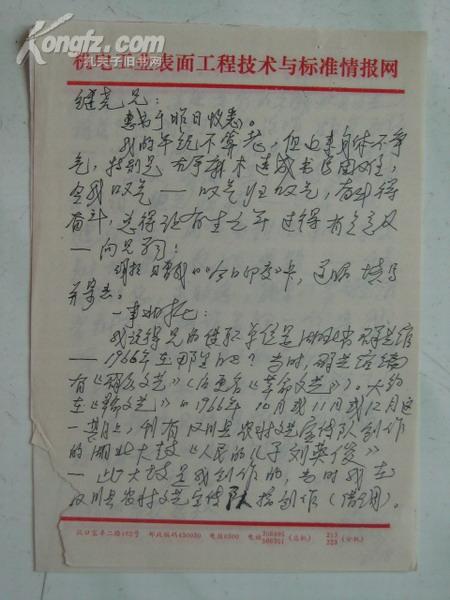 Kongfz.com
孔夫子旧书网
机电工业表面工程技术与标准情报网
继尧兄:
惠书于昨日收悉。
我的年纪不算老,但由来身体不争
气,特别是
令我叹气——叹气归叹气,奋斗得
奋斗,总得让有生之年过得有意义
——向兄
并寄去。
一事相托:
我记得兄的任职单位是湖北省群艺馆
——1966年在那里吧?当时,群艺馆编
有《群众文艺》(后更名《革命文艺》)。大约
在《革命文艺》的1966年10月或11月或12月这
一期上,刊有汉川县农村文艺宣传队创作
的湖北大鼓《人民的儿子刘英俊》
——此大鼓是我创作的,当时我在
汉川县农村文艺宣传队搞创作(借用)。
邮政编码430030